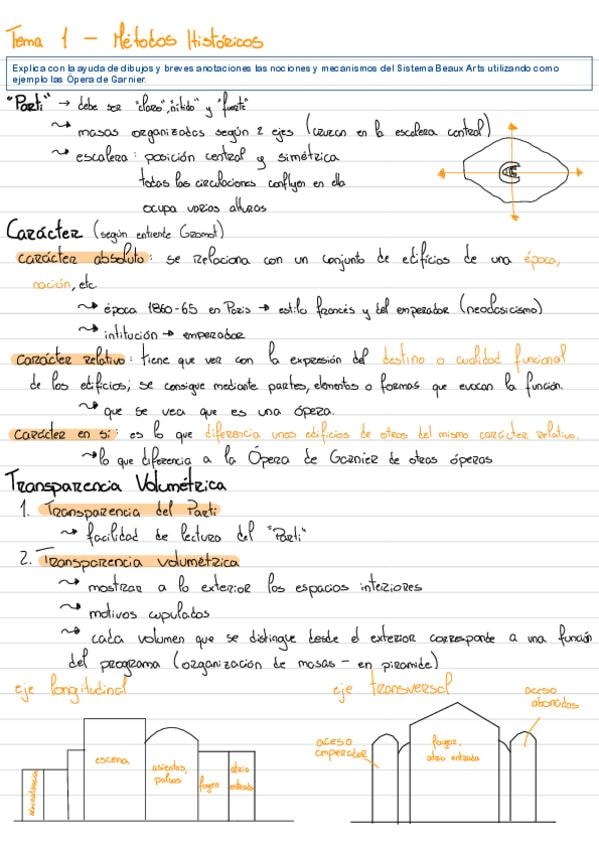 Tema 1 – Métodos Históricos
Explica con la ayuda de dibujos y breves anotaciones las nociones y mecanismos del Sistema Beaux Arts utilizando como
ejemplo las Ópera de Garnier.
"Parti" → debe ser "claro", "nítido" y "fuerte"
masas organizadas según 2 ejes (cruzan en la escalera central)
escalera: posición central y simétrica
todas las circulaciones confluyen en ella
ocupa varias alturas
Carácter (según entiente Gromot)
carácter absoluto: se relaciona con un conjunto de edificios de una época,
nación, etc.
época 1860-65 en París → estilo francés y del emperador (neoclasicismo)
intitución → emperador
carácter relativo: tiene que ver con la expresión del destino o cualidad funcional
de los edificios; se consigue mediante partes, elementos o formas que evocan la función.
que se vea que es una ópera.
carácter en sí: es lo que diferencia unos edificios de otros del mismo carácter relativo.
lo que diferencia a la Ópera de Garnier de otras óperas
Transparencia Volumétrica
1. Transparencia del Parti
facilidad de lectura del "Parti"
2. Transparencia volumétrica
mostrar a lo exterior los espacios interiores
motivos cupulados
cada volumen que se distingue desde el exterior corresponde a una función
del programa (organización de masas – en piramide)
eje longitudinal
eje transversal
aceso
abonados
aceso
emperador
foyer,
atrio entrada
escena
asientos,
palcos
foyer
atrio
entrada
administración